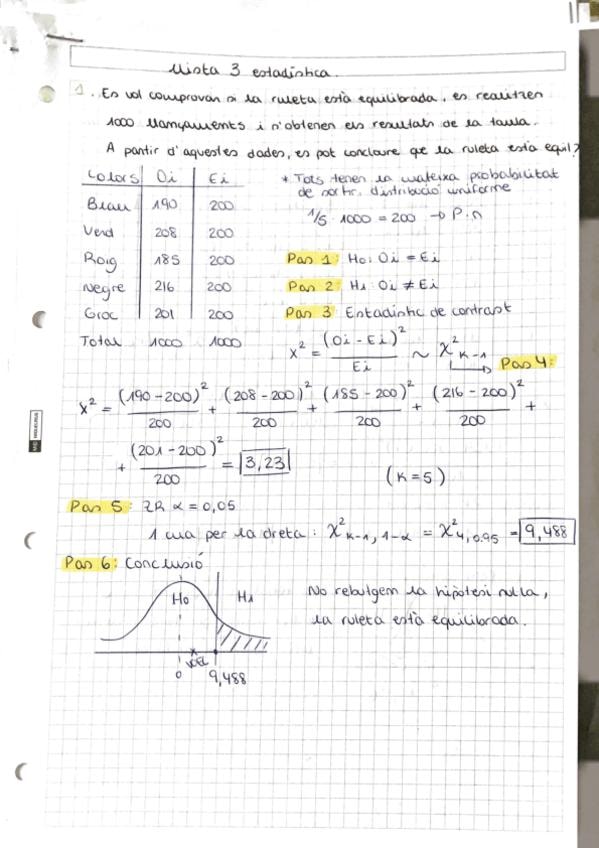 Llista 3 estadística.
1. Es vol comprovar si la ruleta està equilibrada, es realitzen
1000 llançaments i s'obtenen els resultats de la taula.
A partir d'aquestes dades, es pot concloure que la ruleta està equil?
Colors Oi Ei
Blau 190 200
Verd 208 200
Roig 185 200
Negre 216 200
Groc 201 200
Total 1000 1000
* Tots tenen la mateixa probabilitat
de sortir, distribució uniforme
1/5 · 1000 = 200 → P·n
Pas 1: H0: Oi = Ei
Pas 2: H1: Oi ≠ Ei
Pas 3: Estadístic de contrast
X² = (Oi - Ei)² / Ei ~ X² K-1
Pas 4:
X² = (190-200)²/200 + (208-200)²/200 + (185-200)²/200 + (216-200)²/200 +
+ (201-200)²/200 = 3,23
(K=5)
Pas 5: ZR α = 0,05
1 cua per la dreta: X² K-1, 1-α = X² 4, 0.95 = 9,488
Pas 6: Conclusió
H0 H1
0 9,488
No rebutgem la hipòtesi nul·la,
la ruleta està equilibrada.